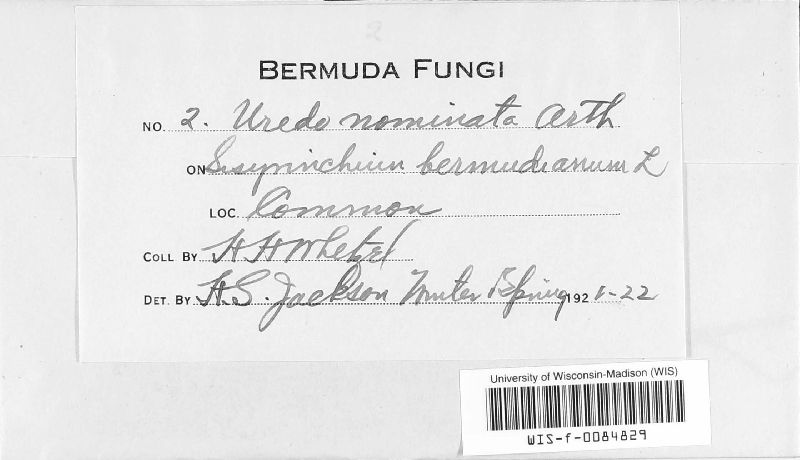 2
BERMUDA FUNGI
NO. 2. Uredo nominata Arth
ON Sisyrinchium bermudianum L
LOC. Common
COLL BY H H Whetzel
DET. BY H.S. Jackson Winter & Spring 1921-22
University of Wisconsin-Madison (WIS)
WIS-f-0084829